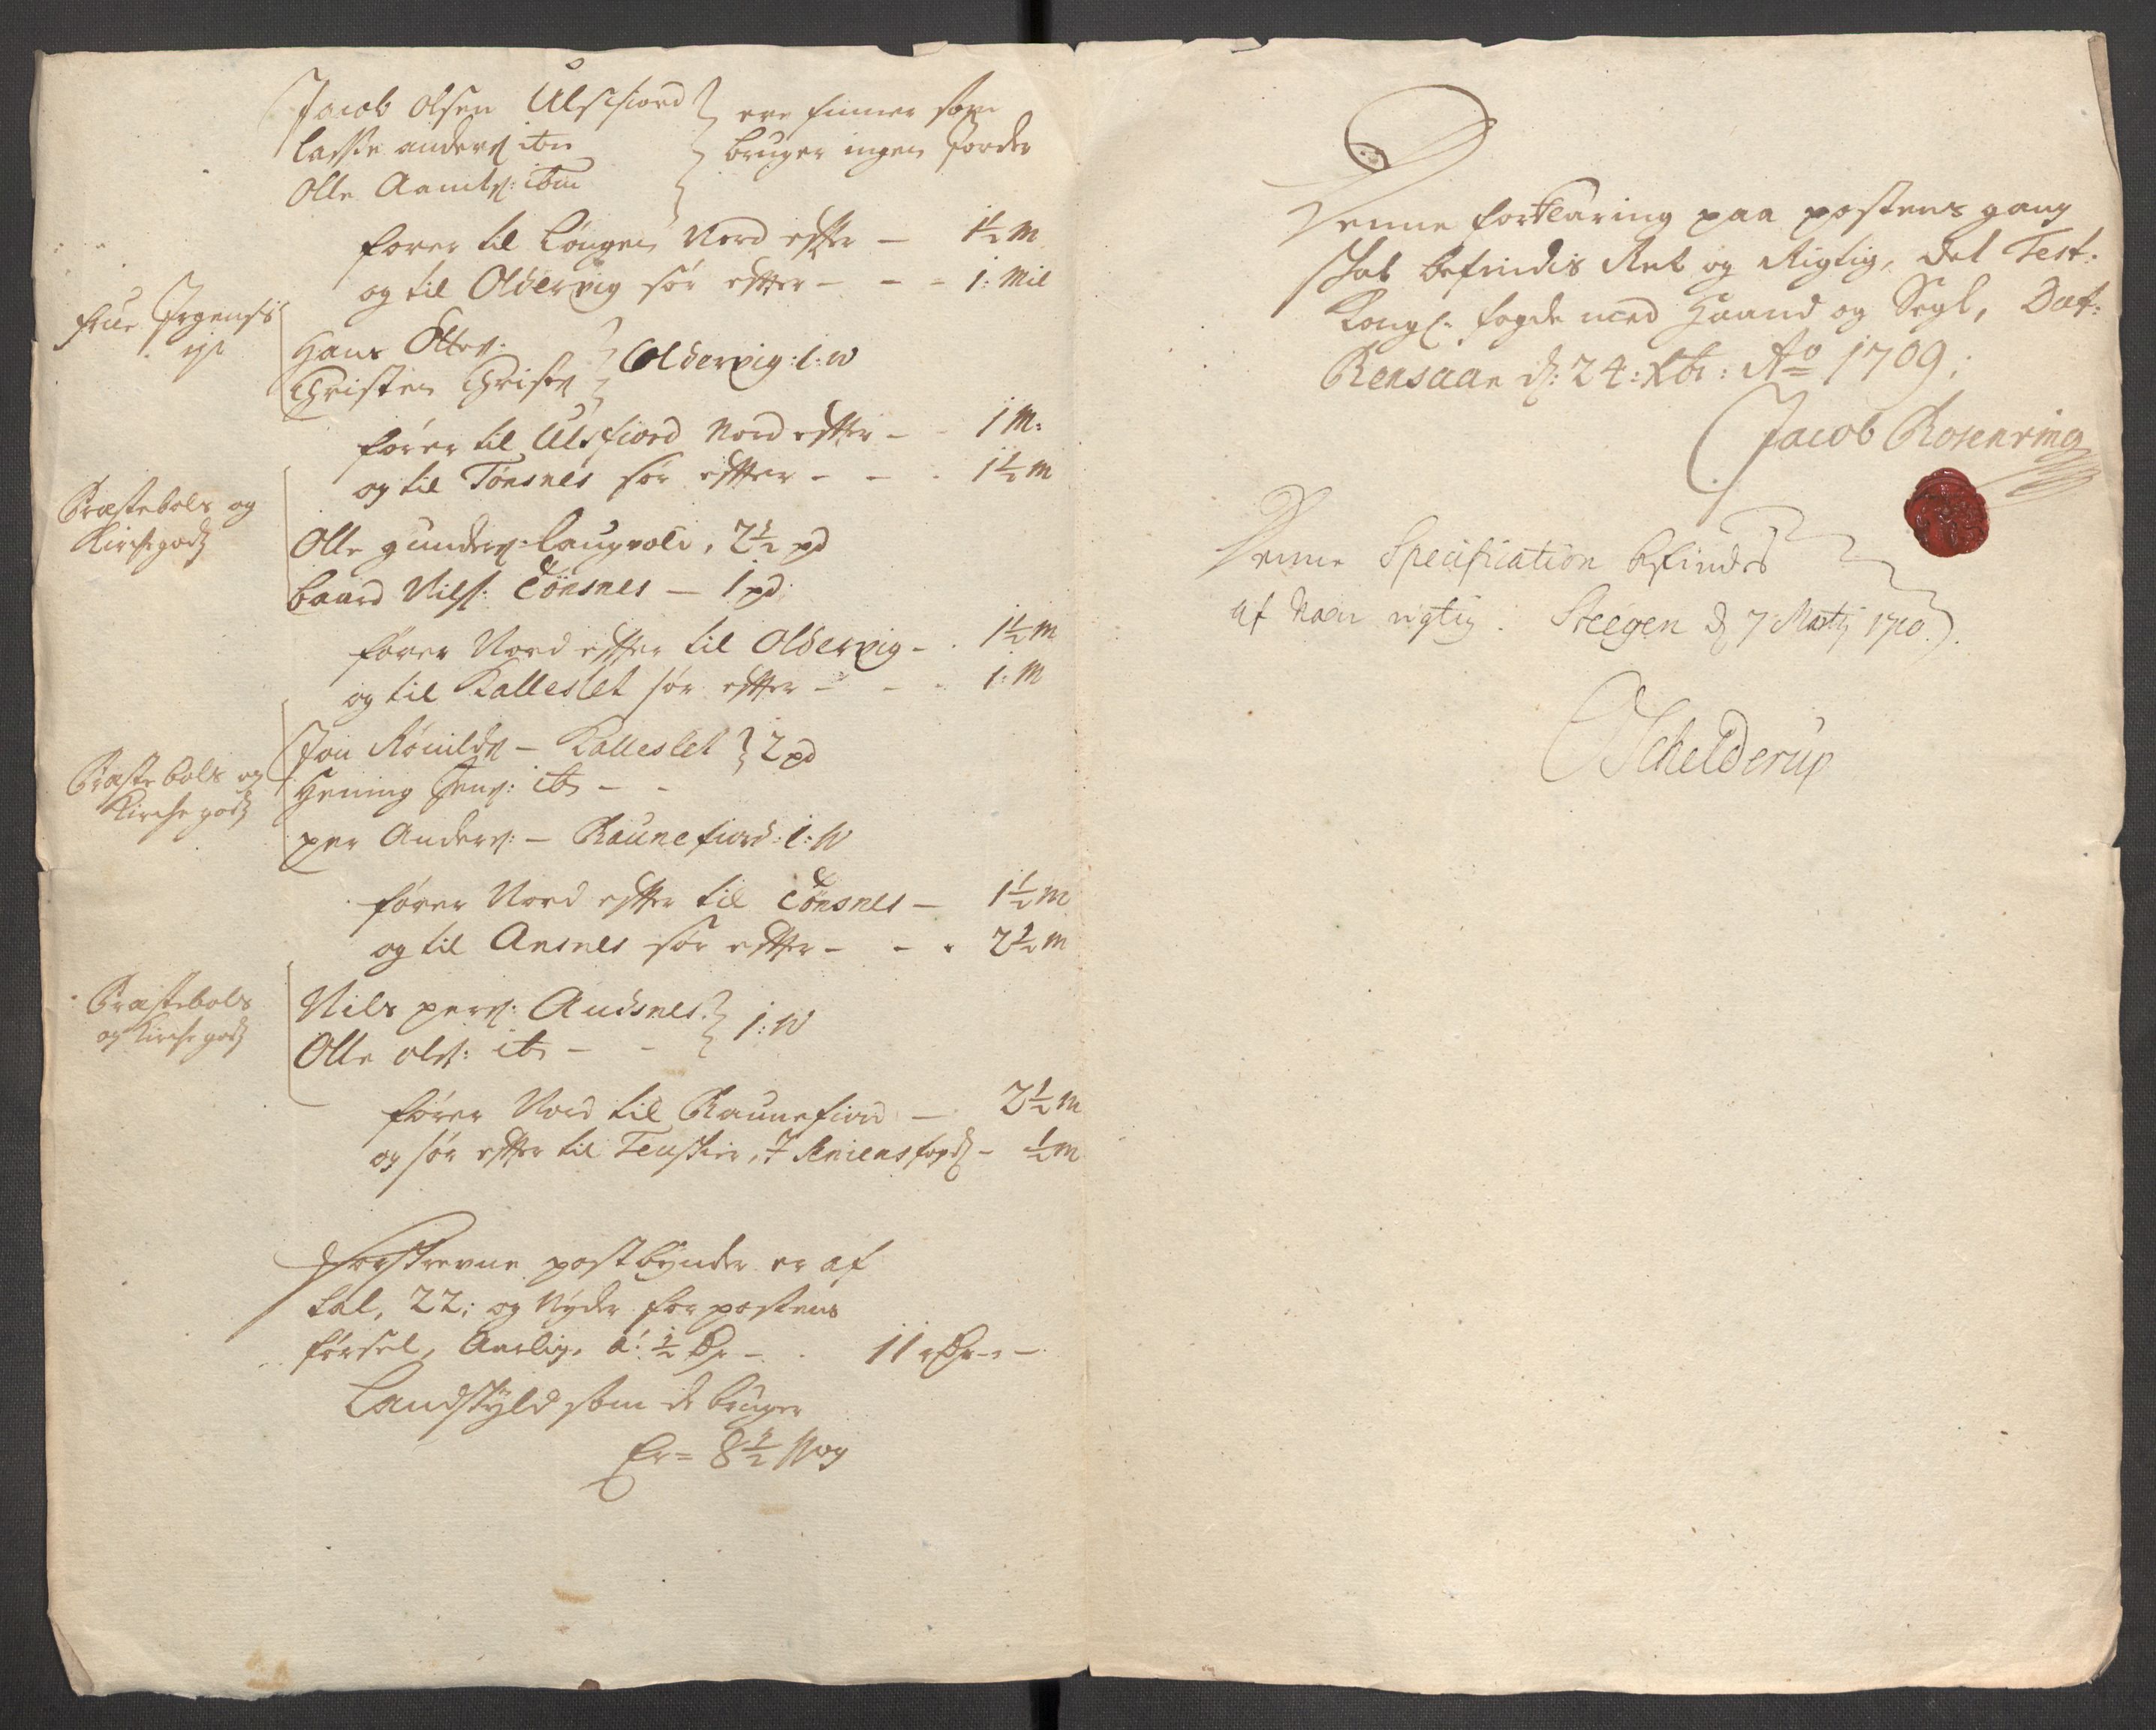 Jacob Olsen Ulsfiord } ere finner som
Lasse anders: ibm } bruger ingen Jorder
Olle Aamts: ibm
fører til Lyngen Nord effter — 1½ M
og til Oldervig sør effter — — 1: Mil
frue Irgenss
Hans Ottes: } Oldervig: 1: W
Christen Christs
fører til Ulsfiord Nord effter — 1 M:
og til Tønsnes sør effter — — 1½ M
Præstebols og
Kirchegods
Olle gunders: 2½ pd
baard Nils: Tønsnes — 1 pd
fører Nord effter til Oldervig — 1½ M
og til Kalleslet sør effter — — 1: M
Præstebols og
Kirchegods
Jon — Kalleslet } 2 pd
Hening Jens: ib — —
per Anders: — Raunefiord: 1: W
fører Nord effter til Tønsnes — 1½ M
og til Ansnes sør effter — — 2½ M
Præstebols
og Kirchegods
Nils pers: Andsnes } 1: W
Olle ols: ib — —
fører Nord til Raunefiord — 2½ M
og sør effter til J Seniens fogd — ½ M
Forskrevne postbynder er af
tal, 22: og Nyder for postens
førsel, Aarlig, á: ½ Dr — 11 rDr — —
Landskyld som de bruger
Er = 8½ Wog
Denne forklaring paa postens gang
schal befindis Ret og Rigtig, det Test:
Kongl: fogde med Haand og Segl, Dat:
Rensaan d: 24: Xbr: Ao 1709:
Jacob Rosenring
Denne Specification befindes
af rigtig. Steegen d 7 Martij 1710.
OSchelderup